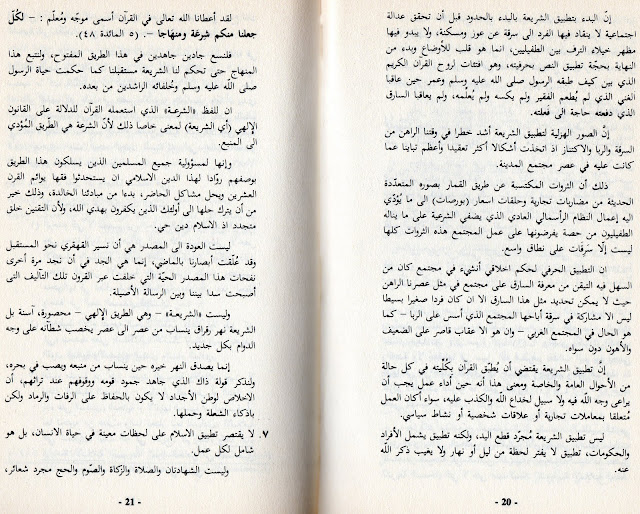 إنّ البدء بتطبيق الشريعة بالبدء بالحدود قبل أن تحقق عدالة
اجتماعية لا ينقاد فيها الفرد الى سرقة عن عوز ومسكنة، ولا يبدو فيها
مظهر خيلاء الترف بين الطفيليين، انما هو قلب للأوضاع وبدء من
النهاية بحجّة تطبيق النص بحرفيته، وهو افتئات لروح القرآن الكريم
الذي بين كيف طبقه الرسول صلى الله عليه وسلم وعمر حين عاقبا
الغني الذي لم يُطعم الفقير ولم يكسه ولم يُعلّمه، ولم يعاقبا السارق
الذي دفعته حاجة الى فعلته.
إنّ الصور الهزلية لتطبيق الشريعة أشد خطرا في وقتنا الراهن من
السرقة والربا والاكتناز اذ اتخذت أشكالا أكثر تعقيدا وأعظم تباينا عما
كانت عليه في عصر مجتمع المدينة.
ذلك أن الثروات المكتسبة عن طريق القمار بصوره المتعدّدة
الحديثة من مضاربات تجارية وحلقات اسعار (بورصات) الى ما يُؤدّي
اليه إعمال النظام الرأسمالي العادي الذي يضفي الشرعية على ما يناله
الطفيليون من حصة يفرضونها على عمل المجتمع هذه الثروات كلها
ليست إلّا سَرقات على نطاق واسع.
ان التطبيق الحرفي لحكم اخلاقي أنشيء في مجتمع كان من
السهل فيه التيقن من معرفة السارق على مجتمع في مثل عصرنا الراهن
حيث لا يمكن تحديد مثل هذا السارق الا ان كان فردا صغيرا بسيطا
ليس الا مشاركة في سرقة أباحها المجتمع الذي أسس على الربا – كما
هو الحال في المجتمع الغربي – وان هو الا عقاب قاصر على الضعيف
والأهون دون سواه.
إنّ تطبيق الشريعة يقتضي أن يُطبّق القرآن بكُلّيته في كل حالة
من الأحوال العامة والخاصة ومعنى هذا أنه حين أداء عمل يجب أن
يراعى وجه اللّه فيه ولا سبيل لخداع اللّه والكذب عليه، سواء أكان العمل
مُتعلقا بمعاملات تجارية أو علاقات شخصية أو نشاط سياسي.
ليس تطبيق الشريعة مُجرّد قطع اليد، ولكنه تطبيق يشمل الأفراد
والحكومات، تطبيق لا يفتر لحظة من ليل أو نهار ولا يغيب ذكر اللّه
عنه.
- 20 -
لقد أعطانا اللّه تعالى في القرآن أسمى موجّه ومُعلّم : – لكُلّ
جعلنا منكم شِرعَة ومنهَاجاً –. (٥ المائدة ٤٨).
فلنسع جادين جاهدين في هذا الطريق المفتوح، ولنتبع هذا
المنهاج حتى تحكم لنا الشريعة مستقبلنا كما حكمت حياة الرسول
صلى اللّه عليه وسلم وخُلفائه الراشدين من بعده.
ان للفظ «الشرعة» الذي استعمله القرآن للدلالة على القانون
الإلهي (أي الشريعة) لمعنى خاصا ذلك لأنّ الشرعة هي الطّريق المُؤدي
الى المنبع.
وإنها لمسؤولية جميع المسلمين الذين يسلكون هذا الطريق
بوصفهم روّادا لهذا الدين الاسلامي ان يستحدثوا فقها يوائم القرن
العشرين ويحل مشاكل الحاضر، بدءا من مبادئنا الخالدة، وذلك خير
من أن يترك حلها الى أولئك الذين يكفرون بهدي اللّه، ولأن التقنين خلق
متجدد اذ الاسلام دين حي.
ليست العودة الى المصدر هي أن نسير القهقري نحو المستقبل
وقد عُلّقت أبصارنا بالماضي، إنما هي الجد في أن نجد مرة أخرى
نفحات هذا المصدر الحيّة التي خلفت عبر القرون تلك التآليف التى
أصبحت سدا بيننا وبين الرسالة الأصيلة.
وليست «الشريعـة» – وهي الطريق الإلهي – محصورة، آسنة بل
الشريعة نهر رقراق ينساب من عصر الى عصر يخصب شطآنه على وجه
الدوام بكل جديد.
إنما يصدق النهر خيره حين ينساب من منبعه ويصب في بحره،
ولنذكر قولة ذاك الذي جاهد جمود قومه ووقوفهم عند تراثهم، أن
الاخلاص لوطن الأجداد لا يكون بالحفاظ على الرفات والرماد ولكن
باذكاء الشعلة وحملها.
٧. لا يقتصر تطبيق الاسلام على لحظات معينة في حياة الانسان، بل هو
شامل لكل عمل.
وليست الشهادتان والصلاة والزّكاة والصّوم والحج مجرد شعائر،
- 21 -